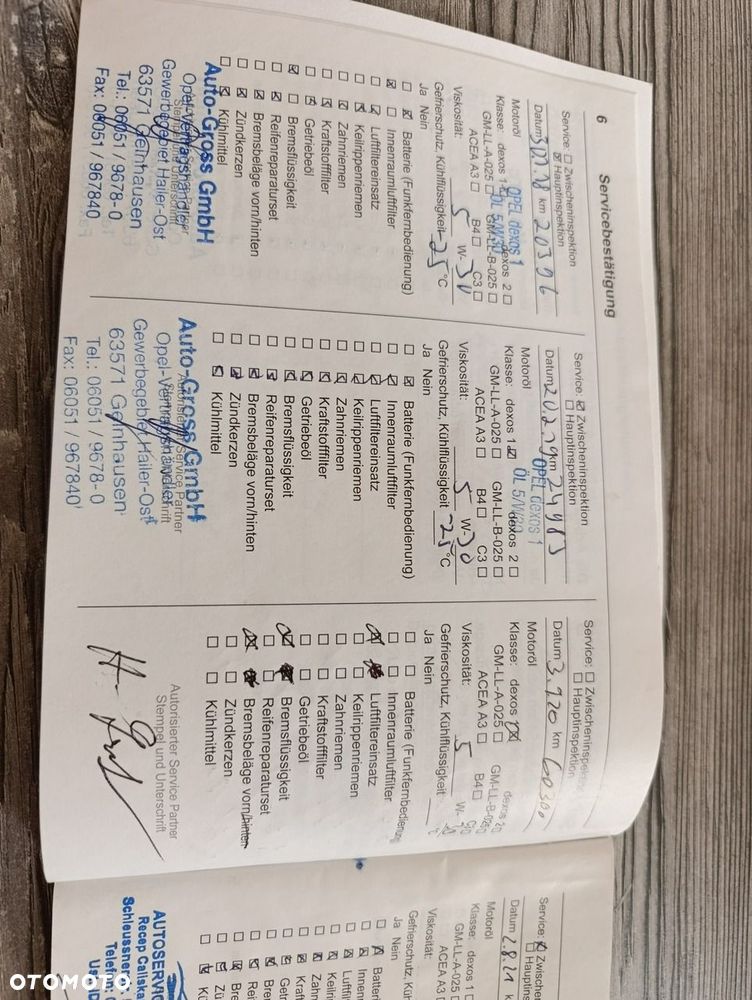 6 Servicebestätigung
Service: Zwischeninspektion
Hauptinspektion
Datum km 20396
Motoröl
OPEL dexos 1
ÖL 5/W30
Klasse: dexos 1 dexos 2
GM-LL-A-025 GM-LL-B-025
ACEA A3 B4 C3
Viskosität: 5 W-30
Gefrierschutz, Kühlflüssigkeit -25 °C
Ja Nein
Batterie (Funkfernbedienung)
Innenraumluftfilter
Luftfiltereinsatz
Keilrippenriemen
Zahnriemen
Kraftstofffilter
Getriebeöl
Bremsflüssigkeit
Reifenreparaturset
Bremsbeläge vorn/hinten
Zündkerzen
Kühlmittel
Auto-Gross GmbH
Opel-Vertragshändler
Gewerbegebiet Hailer-Ost
63571 Gelnhausen
Tel.: 06051 / 9678-0
Fax: 06051 / 967840
Service: Zwischeninspektion
Hauptinspektion
Datum km
Motoröl
OPEL dexos 1
ÖL 5/W30
Klasse: dexos 1 dexos 2
GM-LL-A-025 GM-LL-B-025
ACEA A3 B4 C3
Viskosität: 5 W-30
Gefrierschutz, Kühlflüssigkeit -25 °C
Ja Nein
Batterie (Funkfernbedienung)
Innenraumluftfilter
Luftfiltereinsatz
Keilrippenriemen
Zahnriemen
Kraftstofffilter
Getriebeöl
Bremsflüssigkeit
Reifenreparaturset
Bremsbeläge vorn/hinten
Zündkerzen
Kühlmittel
Autorisierter Service Partner
Auto-Gross GmbH
Opel-Vertragshändler
Gewerbegebiet Hailer-Ost
63571 Gelnhausen
Tel.: 06051 / 9678-0
Fax: 06051 / 967840
Service: Zwischeninspektion
Hauptinspektion
Datum km
Motoröl
Klasse: dexos dexos 2
GM-LL-A-025 GM-LL-B-025
ACEA A3 B4
Viskosität: 5 W-
Gefrierschutz, Kühlflüssigkeit
Ja Nein
Batterie (Funkfernbedienung
Innenraumluftfilter
Luftfiltereinsatz
Keilrippenriemen
Zahnriemen
Kraftstofffilter
Getriebeöl
Bremsflüssigkeit
Reifenreparaturset
Bremsbeläge vorn/hinten
Zündkerzen
Kühlmittel
Autorisierter Service Partner
Stempel und Unterschrift
Service: Zwischen
Hauptins
Datum 2.8.21 k
Motoröl
Klasse: dexos 1
GM-LL-A-025
ACEA A3
Viskosität:
Gefrierschutz, Kü
Ja Nein
Batter
AUTOSERVIC
Recep Caliska
Schleussner
OTOMOTO